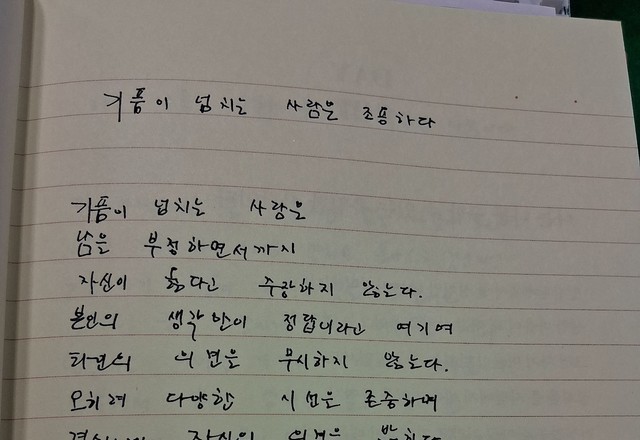 기품이 넘치는 사람은 조용하다
기품이 넘치는 사람은
남을 부정하면서까지
자신이 옳다고 주장하지 않는다.
본인의 생각만이 정답이라고 여기며
타인의 의견을 무시하지 않는다.
오히려 다양한 시선을 존중하며
자신의 의견을